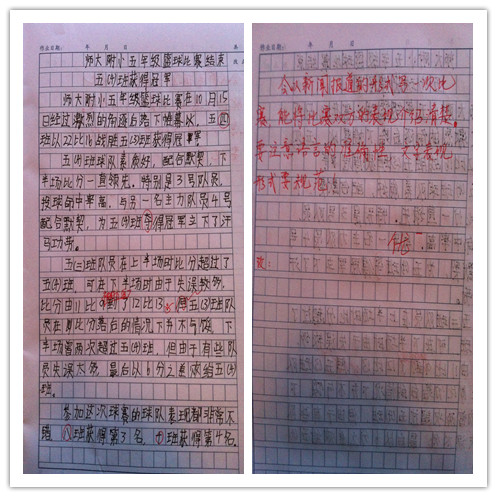 作业日期: 年 月 日
师大附小五年级篮球比赛结束
五(4)班获得冠军
师大附小五年级篮球比赛在10月15
日经过激烈的角逐后落下帷幕。五(四)
班以22比16战胜五(3)班获得冠军
五(4)班球队素质好,配合默契,下
半场比分一直领先。特别是3号队员,
投球命中率高,与另一名主力队员4号
配合默契,为五(4)班夺得冠军立下了汗
马功劳。
五(三)班队员在上半场时比分超过了
五(4)班,可在下半场时由于失误较多,
比分由11比9到了12比13。但五(3)班队
员在比分落后的情况下并不气馁,下
半场曾两次超过五(4)班,但由于有些队
员失误太多,最后以6分之差败给五(4)
班。
参加这次球赛的球队表现都非常不
错 八班获得第3名,十班获得第4名。
作业日期: 年 月 日
会以新闻报道的形式写一次比
赛,能将比赛双方的表现介绍清楚。
要注意语言的准确性,文字表现
形式要规范!
优